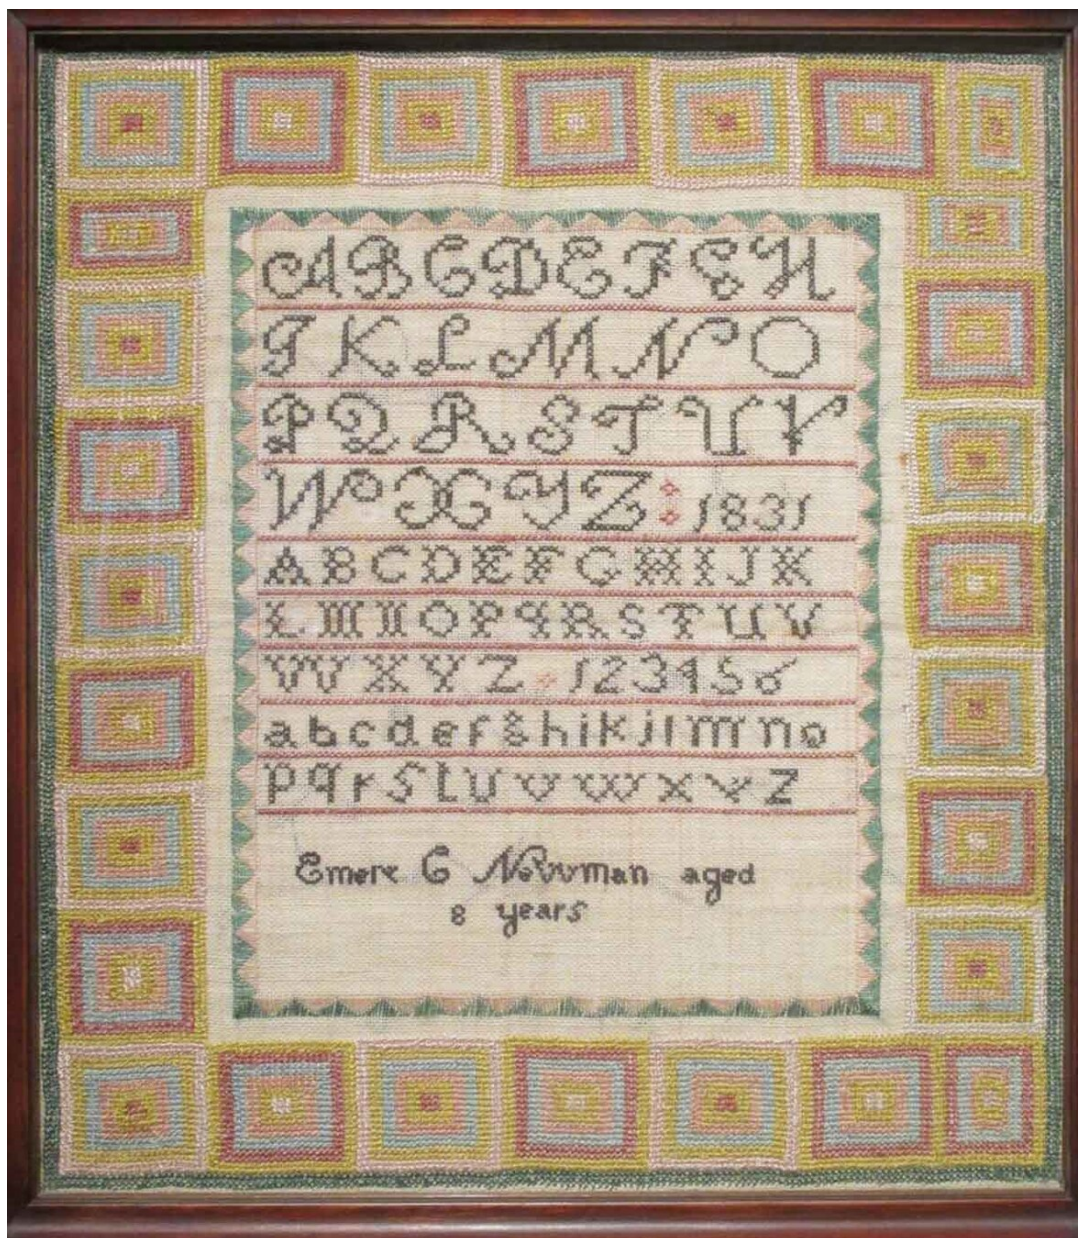 A B C D E F G H
I K L M N O
P Q R S T U V
W X Y Z : 1831
A B C D E F G H I J K
L M N O P q R S T U V
W X Y Z 1 2 3 4 5 6
a b c d e f g h i k j l m n o
p q r s t u v w x y z
Emere C Newman aged
8 years